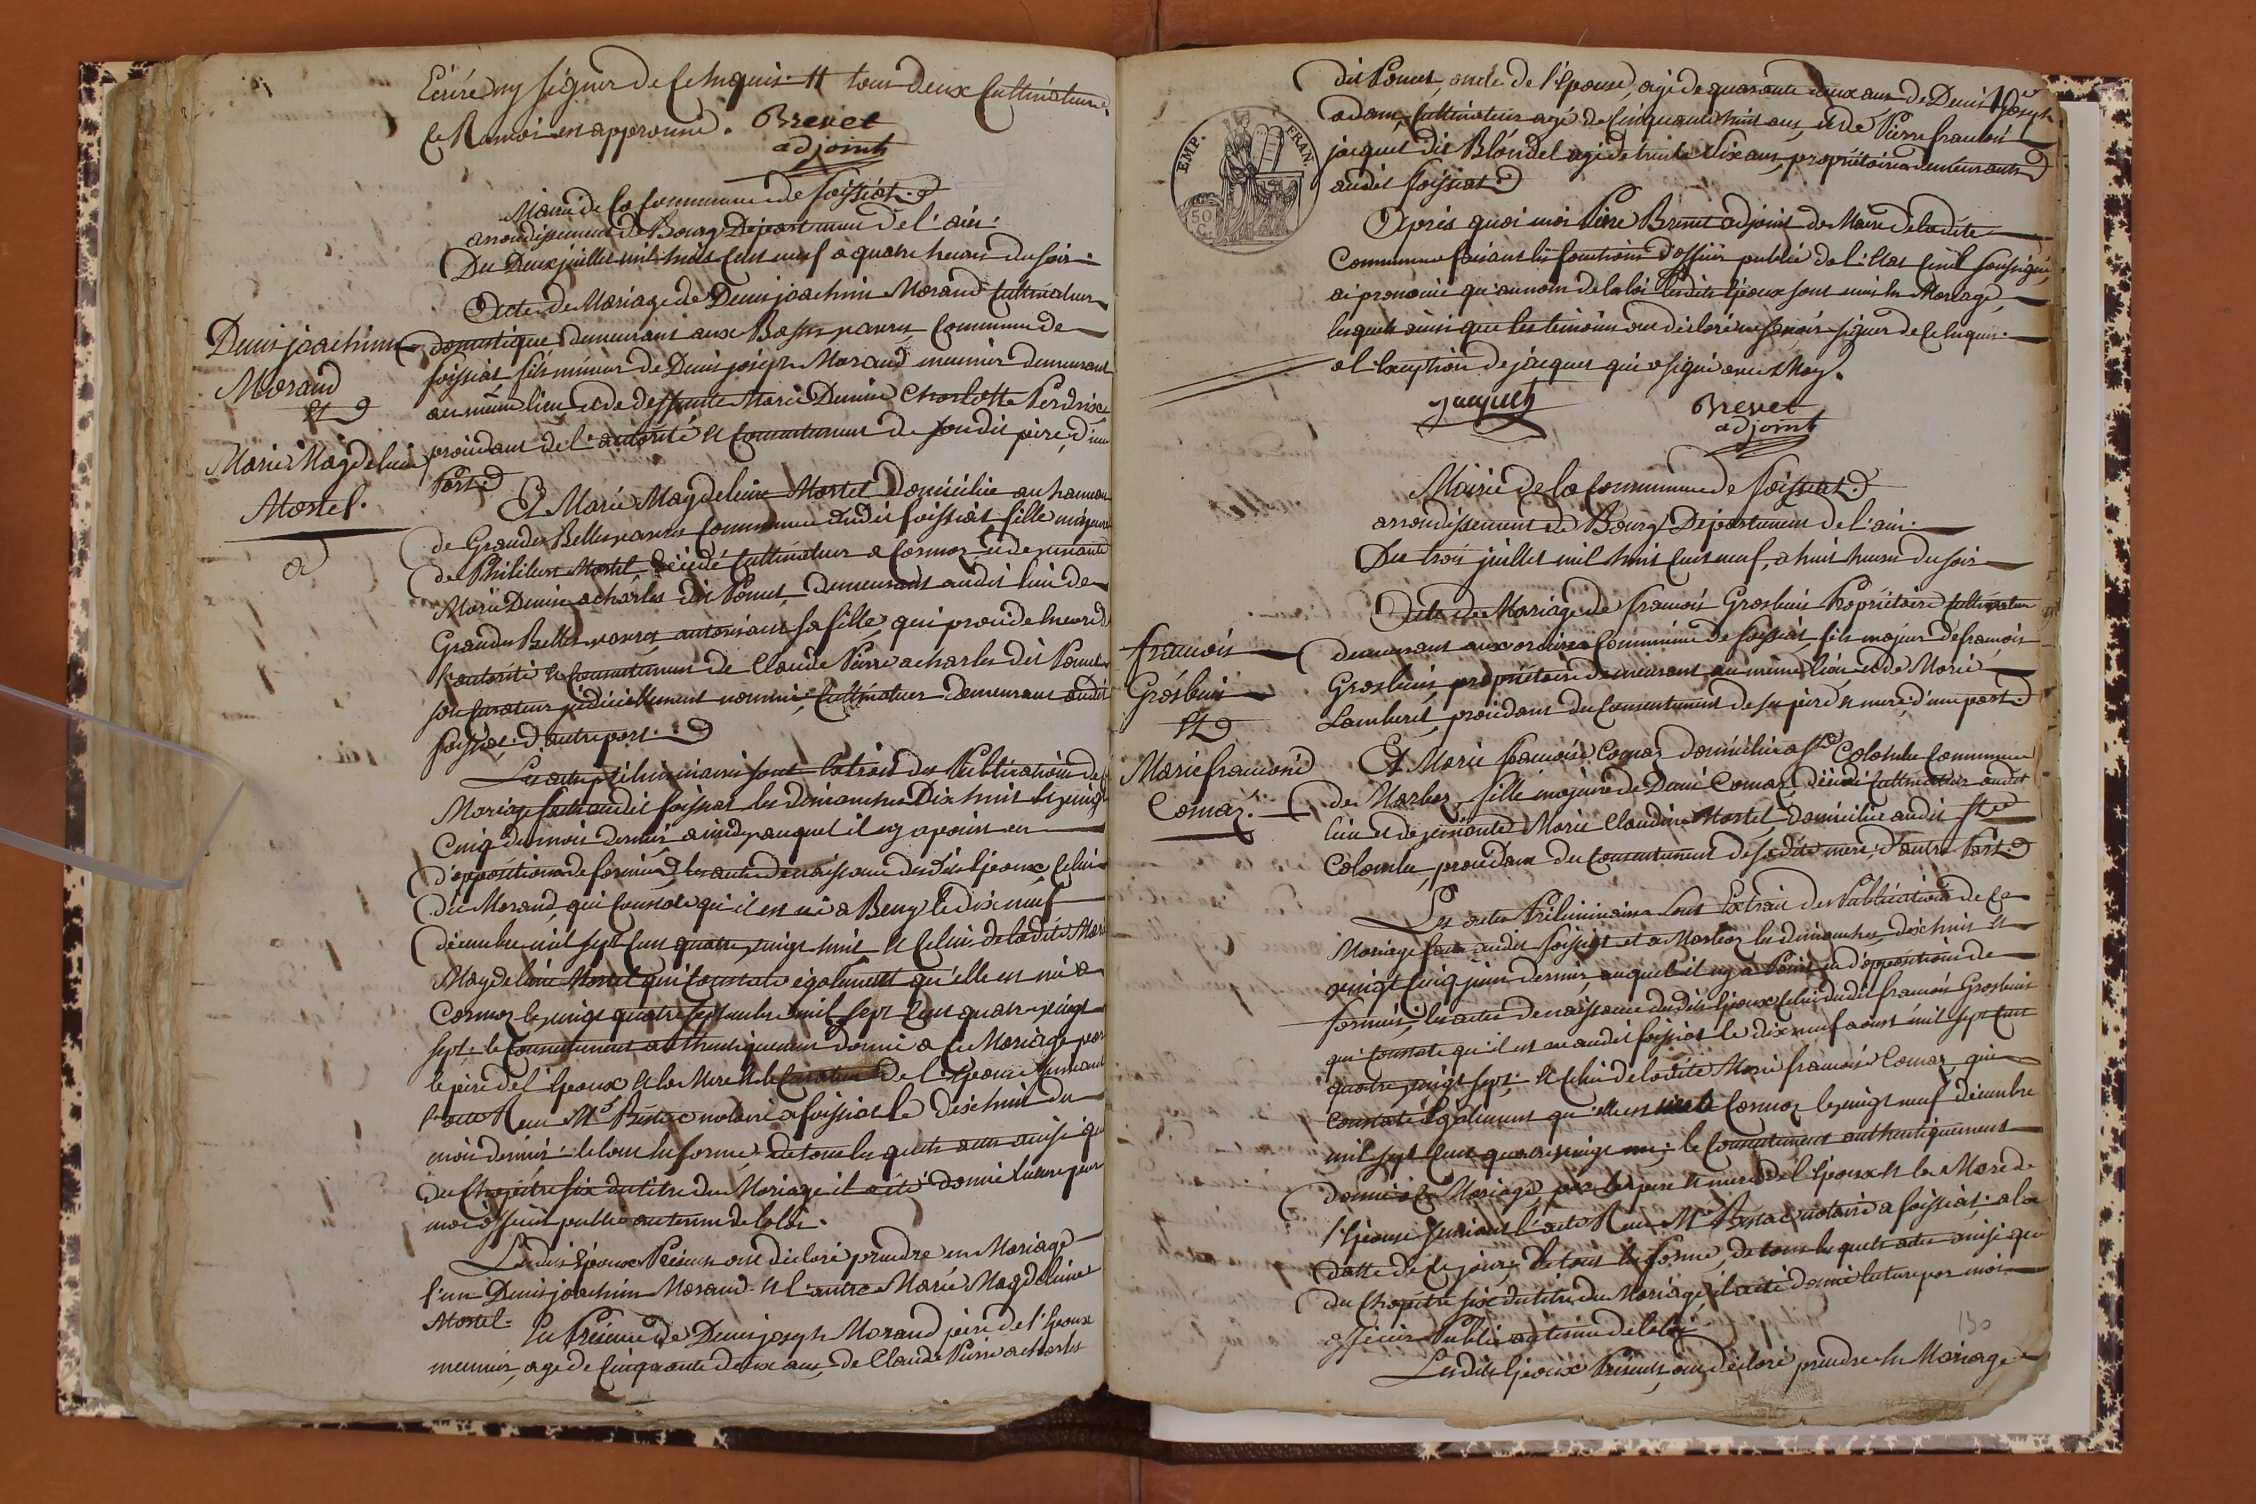 Ecrire ny signer de ce Enquis. H tous deux Cultivateurs
Ce Renvoi est approuvé. Brevet
adjoint
Mairie de la Commune de foissiat.
arrondissement de Bourg Département de l'ain.
Du Deux juillet mil huit Cent neuf a quatre heures du soir.
Acte de Mariage de Denis joachim Morand Cultivateur
domestique demeurant aux Basses commune de
foissiat fils mineur de Denis joseph Morand meunier demeurant
au même lieu et de deffunte Marie Denise Charlotte Perdrix
procédant de l'autorité et Consentement de son dit père, d'une
Part.
Denis joachim
Morand
Et
Marie Magdeleine
Mortel.
Et Marie Magdeleine Mortel Domiciliée au hameau
de Grandes Belles commune dudit foissiat fille mineure
de Philibert Mortel décédé Cultivateur a Cormoz et de vivante
Marie Denise acharles dit Poncet, demeurant audit lieu de
Grandes Belles autorisant sa fille, qui procède encore de
l'autorité et Consentement de Claude Pierre acharles dit Poncet
son Curateur judiciellement nommé, Cultivateur demeurant audit
foissiat. d'autre part.
Les actes préliminaires sont Extrait des Publications de
Mariage faites audit foissiat les dimanches Dix huit et vingt
Cinq du mois dernier a midy auquel il ny a point eu
d'opposition de formée, les actes de naissance desdits Epoux, Celui
du Morand qui Constate qu'il est né a Beny le dix neuf
décembre mil sept Cent quatre vingt huit et Celui de ladite Marie
Magdeleine Mortel qui Constate également qu'elle est née a
Cormoz le vingt quatre septembre mil sept Cent quatre vingt
sept. le Consentement authentiquement donné a ce Mariage par
le père de l'Epoux et la Mere et le Curateur de l'Epouse suivant
l'acte Reçu Me notaire a foissiat le dix huit du
mois dernier. le tout En forme. de tous lesquels actes ainsi que
du Chapitre six du titre du Mariage il a été donné lecture par
moi officier public au terme de la loi.
Lesdits Epoux Présents ont déclaré prendre en Mariage
l'un Denis joachim Morand et l'autre Marie Magdeleine
Mortel.
En Présence de Denis joseph Morand père de l'Epoux
meunier, agé de Cinquante deux ans, de Claude Pierre acharles
dit Poncet, oncle de l'Epouse, agé de quarante deux ans, de Denis Joseph
adam, Cultivateur agé de Cinquante huit ans, et de Pierre francois
jacquet dit Blondel agé de trente six ans, propriétaire demeurants
audit foissiat.
EMP. FRAN.
50 C.
Après quoi moi Pierre Brevet adjoint du Maire de ladite
Commune faisant les fonctions d'officier public de l'Etat Civil soussigné,
ai prononcé qu'au nom de la loi lesdits Epoux sont unis En Mariage,
lesquels ainsi que les témoins ont déclaré ne savoir signer de ce Enquis.
a l'Exception de jacquet qui a signé avec Moy.
jacquet
Brevet
adjoint
Mairie de la Commune de foissiat.
arrondissement de Bourg Département de l'ain.
Du trois juillet mil huit Cent neuf, a huit heures du soir
Acte de Mariage de francois Grosbuis Propriétaire Cultivateur
demeurant aux Commune de foissiat fils majeur de francois
Grosbuis, propriétaire demeurant au même lieu et de Marie
Lamberet, procédant du Consentement de ses père et mere, d'une part.
francois
Grosbuis
Et
Marie francoise
Comaz.
Et Marie francoise Comaz domiciliée a Ste Colombe Commune
de Marboz, fille mineure de Denis Comaz, décédé Cultivateur audit
lieu et de vivante Marie Claudine Mortel domiciliée audit Ste
Colombe, procédant du Consentement de sadite mere, d'autre Part.
Les actes Préliminaires sont Extrait des Publications de Ce
Mariage faites audit foissiat et a Marboz les dimanches dix huit et
vingt Cinq juin dernier, auquel il ny a Point eu d'opposition de
formée, les actes de naissance desdits Epoux Celui dudit francois Grosbuis
qui Constate qu'il est né audit foissiat le dix neuf aoust mil sept Cent
quatre vingt sept, et Celui de ladite Marie francoise Comaz, qui
Constate également qu'elle est née a Cormoz le vingt neuf décembre
mil sept Cent quatre vingt le Consentement authentiquement
donné a Ce Mariage, par les père et mere de l'Epoux et la Mere de
l'Epouse suivant l'acte Reçu Me notaire a foissiat, a la
datte de Ce jour, le tout En forme, de tous lesquels actes ainsi que
du Chapitre six du titre du Mariage il a été donné lecture par moi
officier Public au terme de la loi.
130
Lesdits Epoux Présents, ont déclaré prendre En Mariage